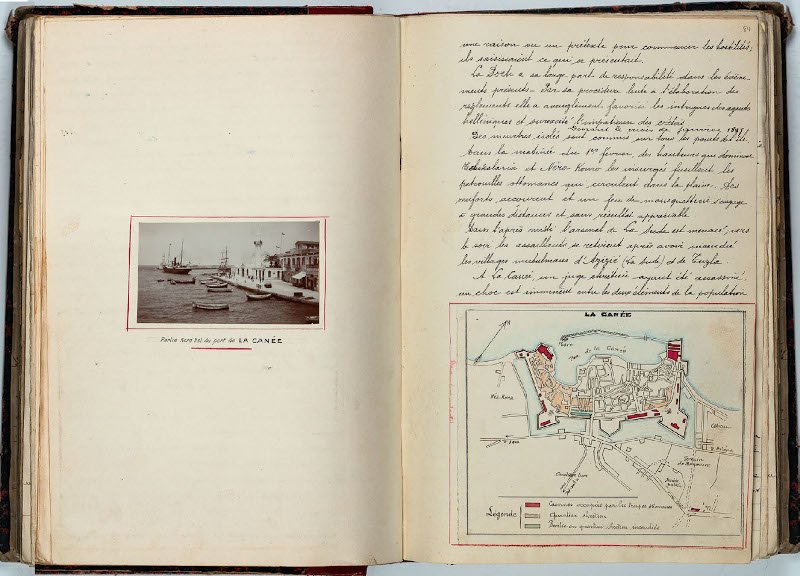 Partie Nord Est du port de LA CANÉE
84
une raison ou un prétexte pour commencer les hostilités;
ils saisissaient ce qui se présentait.
La Porte a sa large part de responsabilité dans les évène-
ments présents. Par sa procédure lente à l'élaboration des
règlements elle a aveuglément favorisé les intrigues des agents
helléniques et surexcité l'impatience des crétois
Durant le mois de janvier 1897
Des meurtres isolés sont commis sur tous les points de l'île.
Dans la matinée du 1er février, des hauteurs qui dominent
et Néro-Kouro les insurgés fusillent les
patrouilles ottomanes qui circulent dans la plaine. Des
renforts accourent et un feu de mousquetterie s'engage
à grandes distances et sans résultat appréciable
Dans l'après midi l'arsenal de La Sude est menacé, vers
le soir les assaillants se retirent après avoir incendié
les villages musulmans d'Azizié (La Sude) et de Tuzla
A La Canée, un juge chrétien ayant été assassiné,
un choc est imminent entre les deux éléments de la population
LA CANÉE
Phare
Port de la Canée
Cimetière Turc
Jardin
public
Légende
Casernes occupées par les troupes ottomanes
Quartier chrétien
Partie du quartier chrétien incendiée